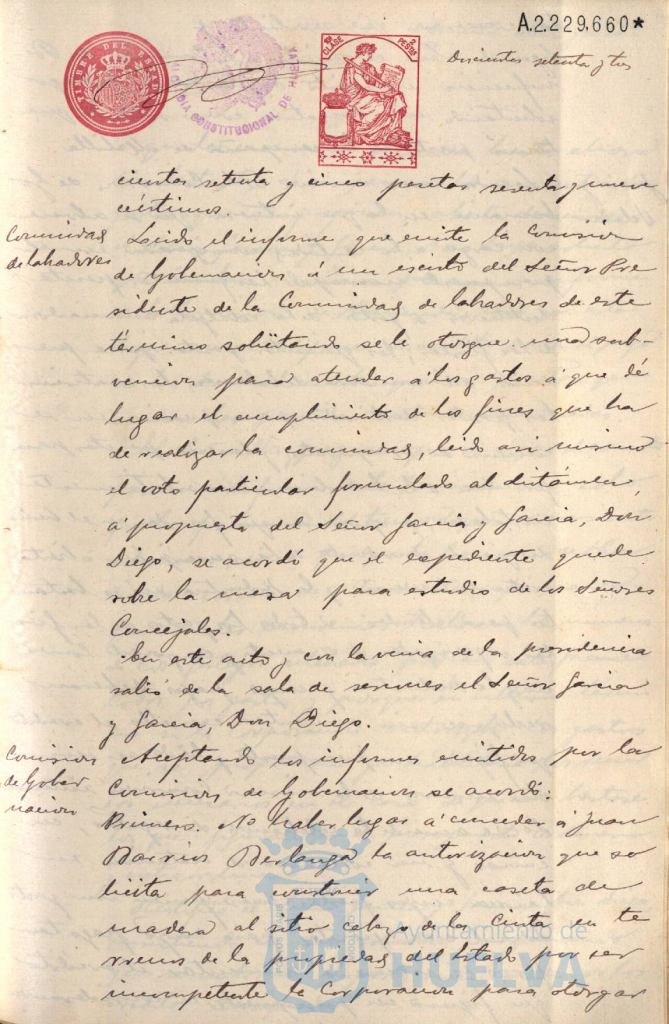 A.2.229.660*
TIMBRE DEL ESTADO
ALCALDIA CONSTITUCIONAL DE HUELVA
CLASE
PESETAS
Doscientos setenta y tres
cientas setenta y cinco pesetas sesenta y nueve
céntimos.
Comunidad
de labradores
Leido el informe que emite la Comisión
de Gobernacion á un escrito del Señor Pre
sidente de la Comunidad de labradores de este
término solicitando se le otorgue una sub-
vencion para atender á los gastos á que dé
lugar el cumplimiento de los fines que ha
de realizar la comunidad, leido asi mismo
el voto particular formulado al dictámen,
á propuesta del Señor Garcia y Garcia, Don
Diego, se acordó que el expediente quede
sobre la mesa para estudio de los Señores
Concejales.
En este acto y con la venia de la presidencia
salió de la sala de sesiones el Señor Garcia
y Garcia, Don Diego.
Comision
de Gober
nacion
Aceptando los informes emitidos por la
Comision de Gobernacion se acordó:
Primero. No haber lugar á conceder á Juan
Barrios Berlanga la autorizacion que so
licita para construir una caseta de
madera al sitio cabezo de la Cinta en te
rrenos de la propiedad del Estado por ser
incompetente la Corporacion para otorgar
Ayuntamiento de
HUELVA